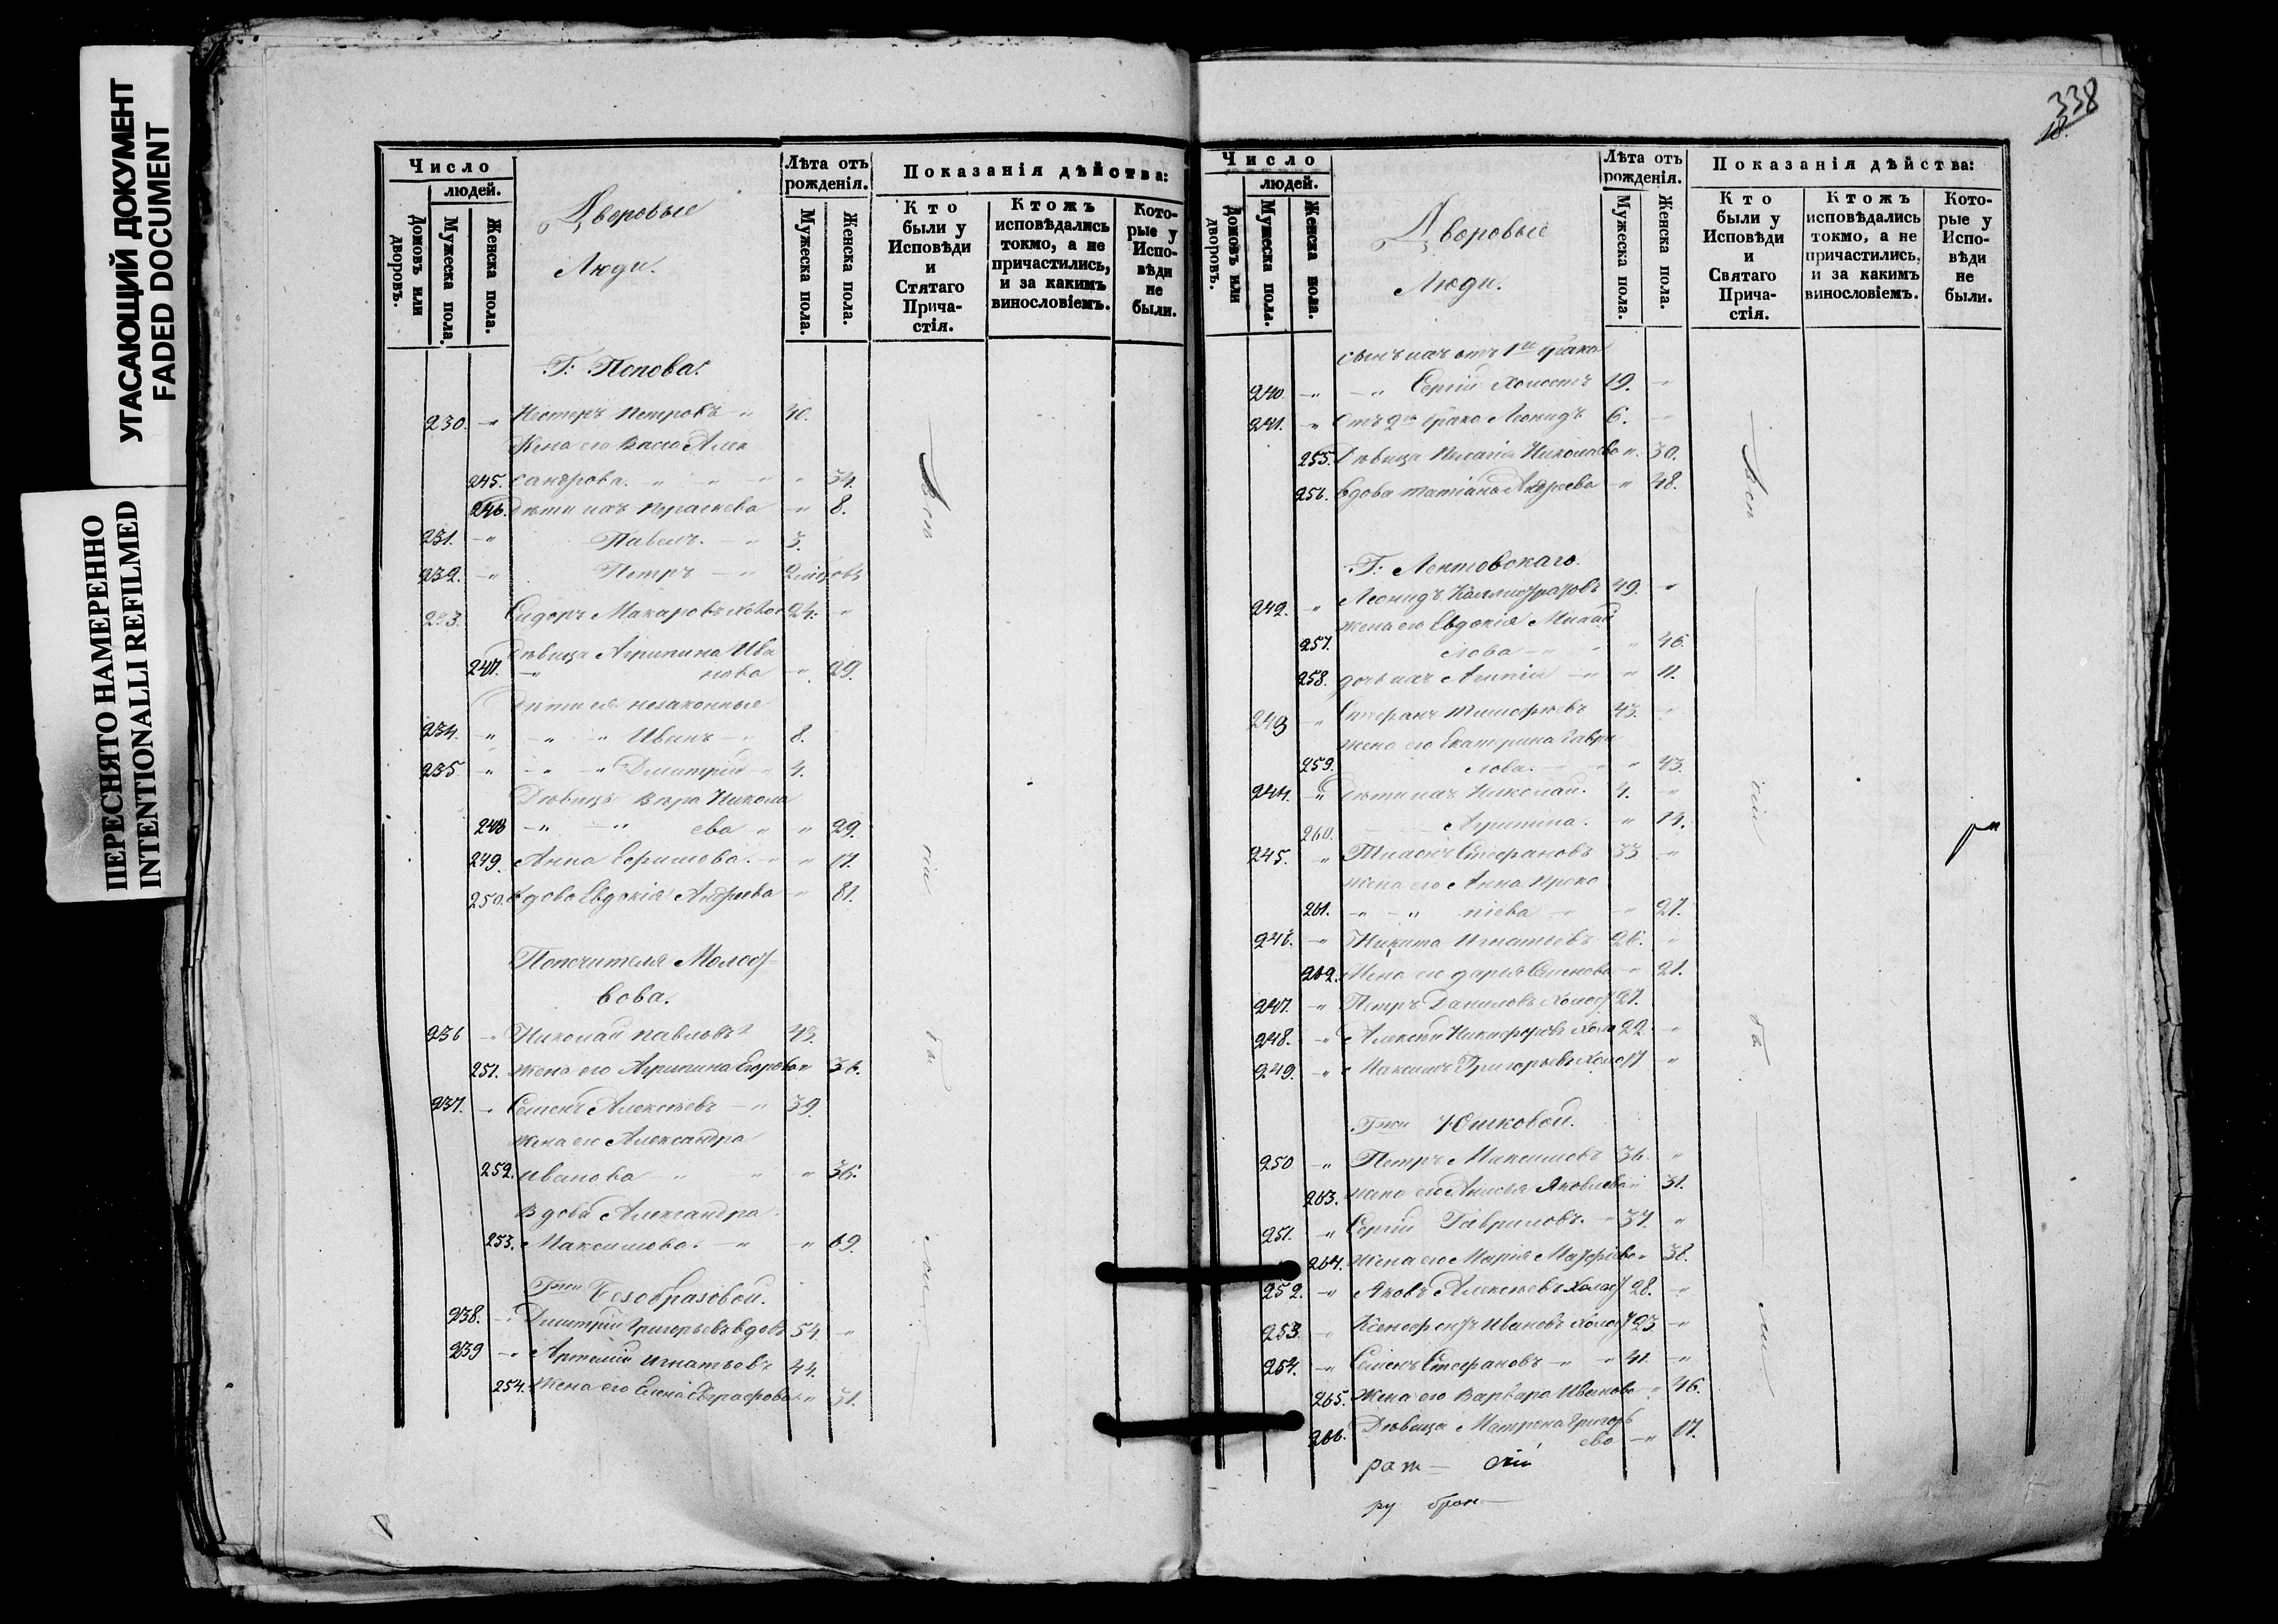 УГАСАЮЩИЙ ДОКУМЕНТ
FADED DOCUMENT
ПЕРЕСНЯТО НАМЕРЕННО
INTENTIONALLI REFILMED
Число
людей.
Домовъ или дворовъ.
Мужеска пола.
Женска пола.
Дворовые
Люди.
Лѣта отъ
рожденія.
Мужеска пола.
Женска пола.
Показанія дѣйства:
Кто
были у
Исповѣди
и
Стятаго
Прича-
стія.
Ктожъ
исповѣдались
токмо, а не
причастились,
и за какимъ
винословіемъ.
Кото-
рые у
Испо-
вѣди
не
были.
Г. Попова.
230. Несторъ Петровъ 40.
Жена его Васса Алек
245. сандрова. 34.
246. Дѣти ихъ Параскева 8.
231. Павелъ. 3.
232. Петръ
233. Сидоръ Макаровъ 24.
Дѣвица Агрипина Ива
247. нова 29.
Дѣти ея незаконныя
234. Иванъ 8.
235. Димитрій 4.
Дѣвица Вѣра Никола
248 ева 29.
249. Анна Ефимова. 17.
250. Вдова Евдокія Андреева 81.
Попечителя Молод
вова.
236 Николай Павловъ 43.
251. Жена его Агрипина Егорова 36.
237. Семенъ Алексѣевъ 39.
Жена его Александра
252. Иванова 36.
Вдова Александра
253. Максимова. 69.
Гжи Безобразовой.
238. Димитрій Григорьевъ вдовъ 54.
239 Артемій Игнатьевъ 44.
254. Жена его Елена Евграфова 31.
338
18.
Число
людей.
Домовъ или дворовъ.
Мужеска пола.
Женска пола.
Дворовые
Люди.
Лѣта отъ
рожденія.
Мужеска пола.
Женска пола.
Показанія дѣйства:
Кто
были у
Исповѣди
и
Святаго
Прича-
стія.
Ктожъ
исповѣдались
токмо, а не
причастились,
и за какимъ
винословіемъ.
Кото-
рые у
Испо-
вѣди
не
были.
сынъ ихъ отъ 1го брака
240 Сергій Холостъ 19.
241. Отъ 2го брака Леонидъ 6.
255. Дѣвица Пелагія Николаева 30.
256. Вдова Татіана Андреева 48.
Г. Лентовскаго.
242. Леонидъ 49.
Жена его Евдокія Михай
257. лова 46.
258. дочь ихъ 11.
243 Стефанъ Тимофѣевъ 43.
Жена его Екатерина Гаври
259. лова. 43.
244. Дѣти ихъ Николай. 4.
260. Агрипина. 14.
245. Стефановъ 33
Жена его Анна Проко
261. піева 27.
246. Никита Игнатьевъ 26.
262. Жена его Дарья Семенова 21.
247. Петръ Даниловъ Холост 27.
248. Алексѣй Никифоровъ Холо 22.
249. Максимъ Григорьевъ Холо 17
Гжи Юшковой.
250 Петръ Максимовъ 36.
263. жена его Анисья Яковлева 31.
251. Сергій Гавриловъ. 37.
264. Жена его Марія 38.
252. Яковъ Алексѣевъ Холос 28.
253. Ксенофонтъ Ивановъ Холос 23
254. Семенъ Стефановъ 41.
265. Жена его Варвара Иванова 46.
266. Дѣвица Матрена Григорь
ева 17.